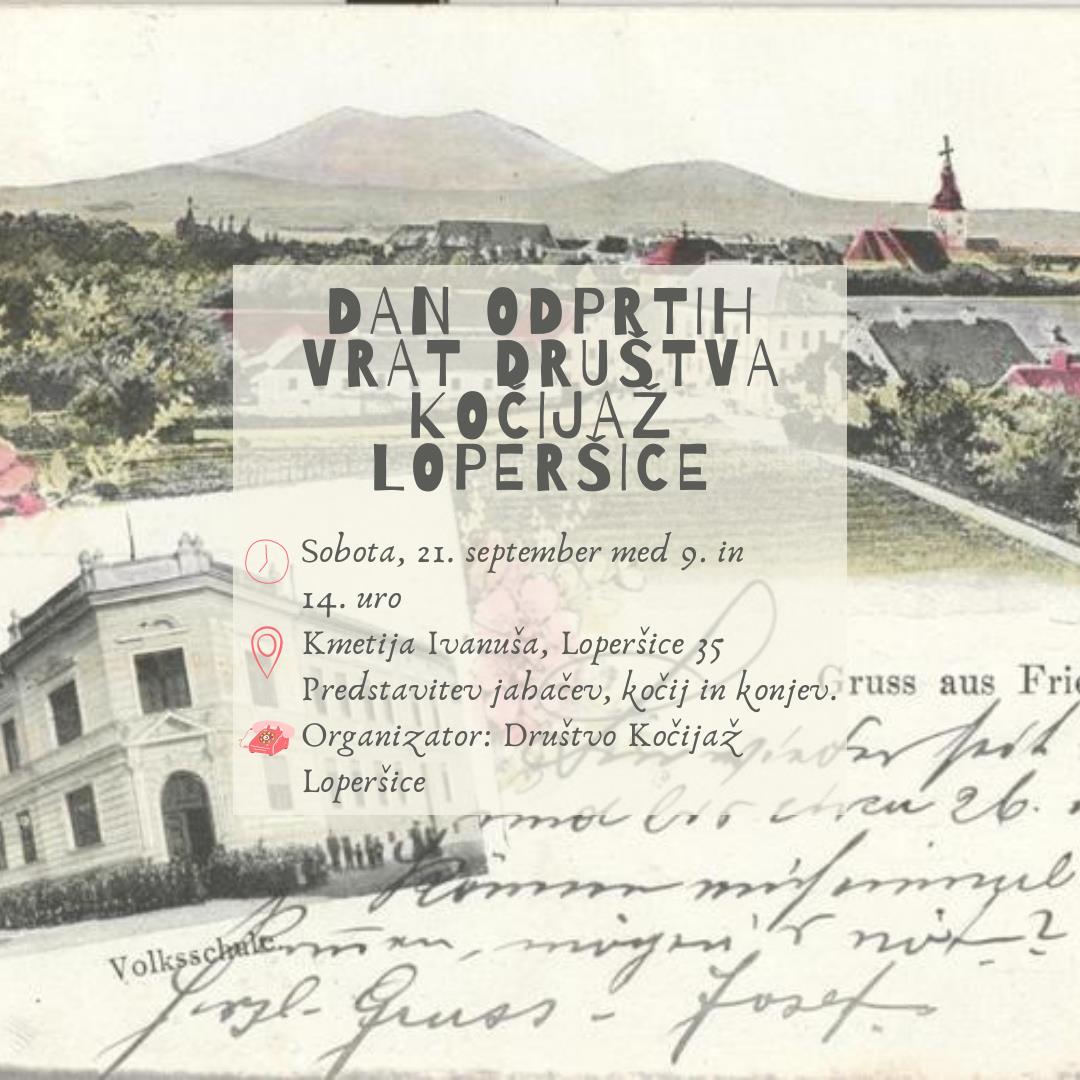 DAN ODPRTIH
VRAT DRUŠTVA
KOČIJAŽ
LOPERŠICE
Sobota, 21. september med 9. in
14. uro
Kmetija Ivanuša, Loperšice 35
Predstavitev jahačev, kočij in konjev.
Organizator: Društvo Kočijaž
Loperšice
Gruss aus Frie
26.
Volksschule.
Gruss - Josef.